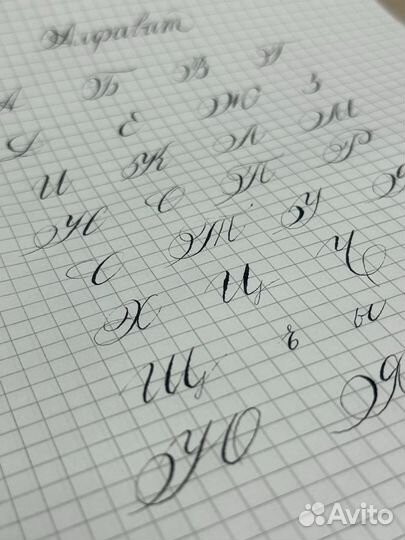 Алфавит
А Б В Г
Д Е Ж З
И К Л М
Н О П Р
С Т У
Х Ц Ч
Щ ъ ы
Ю Я
Avito